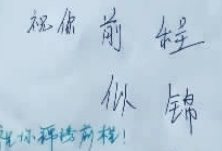 祝你前程
似锦
祝你锦绣前程!